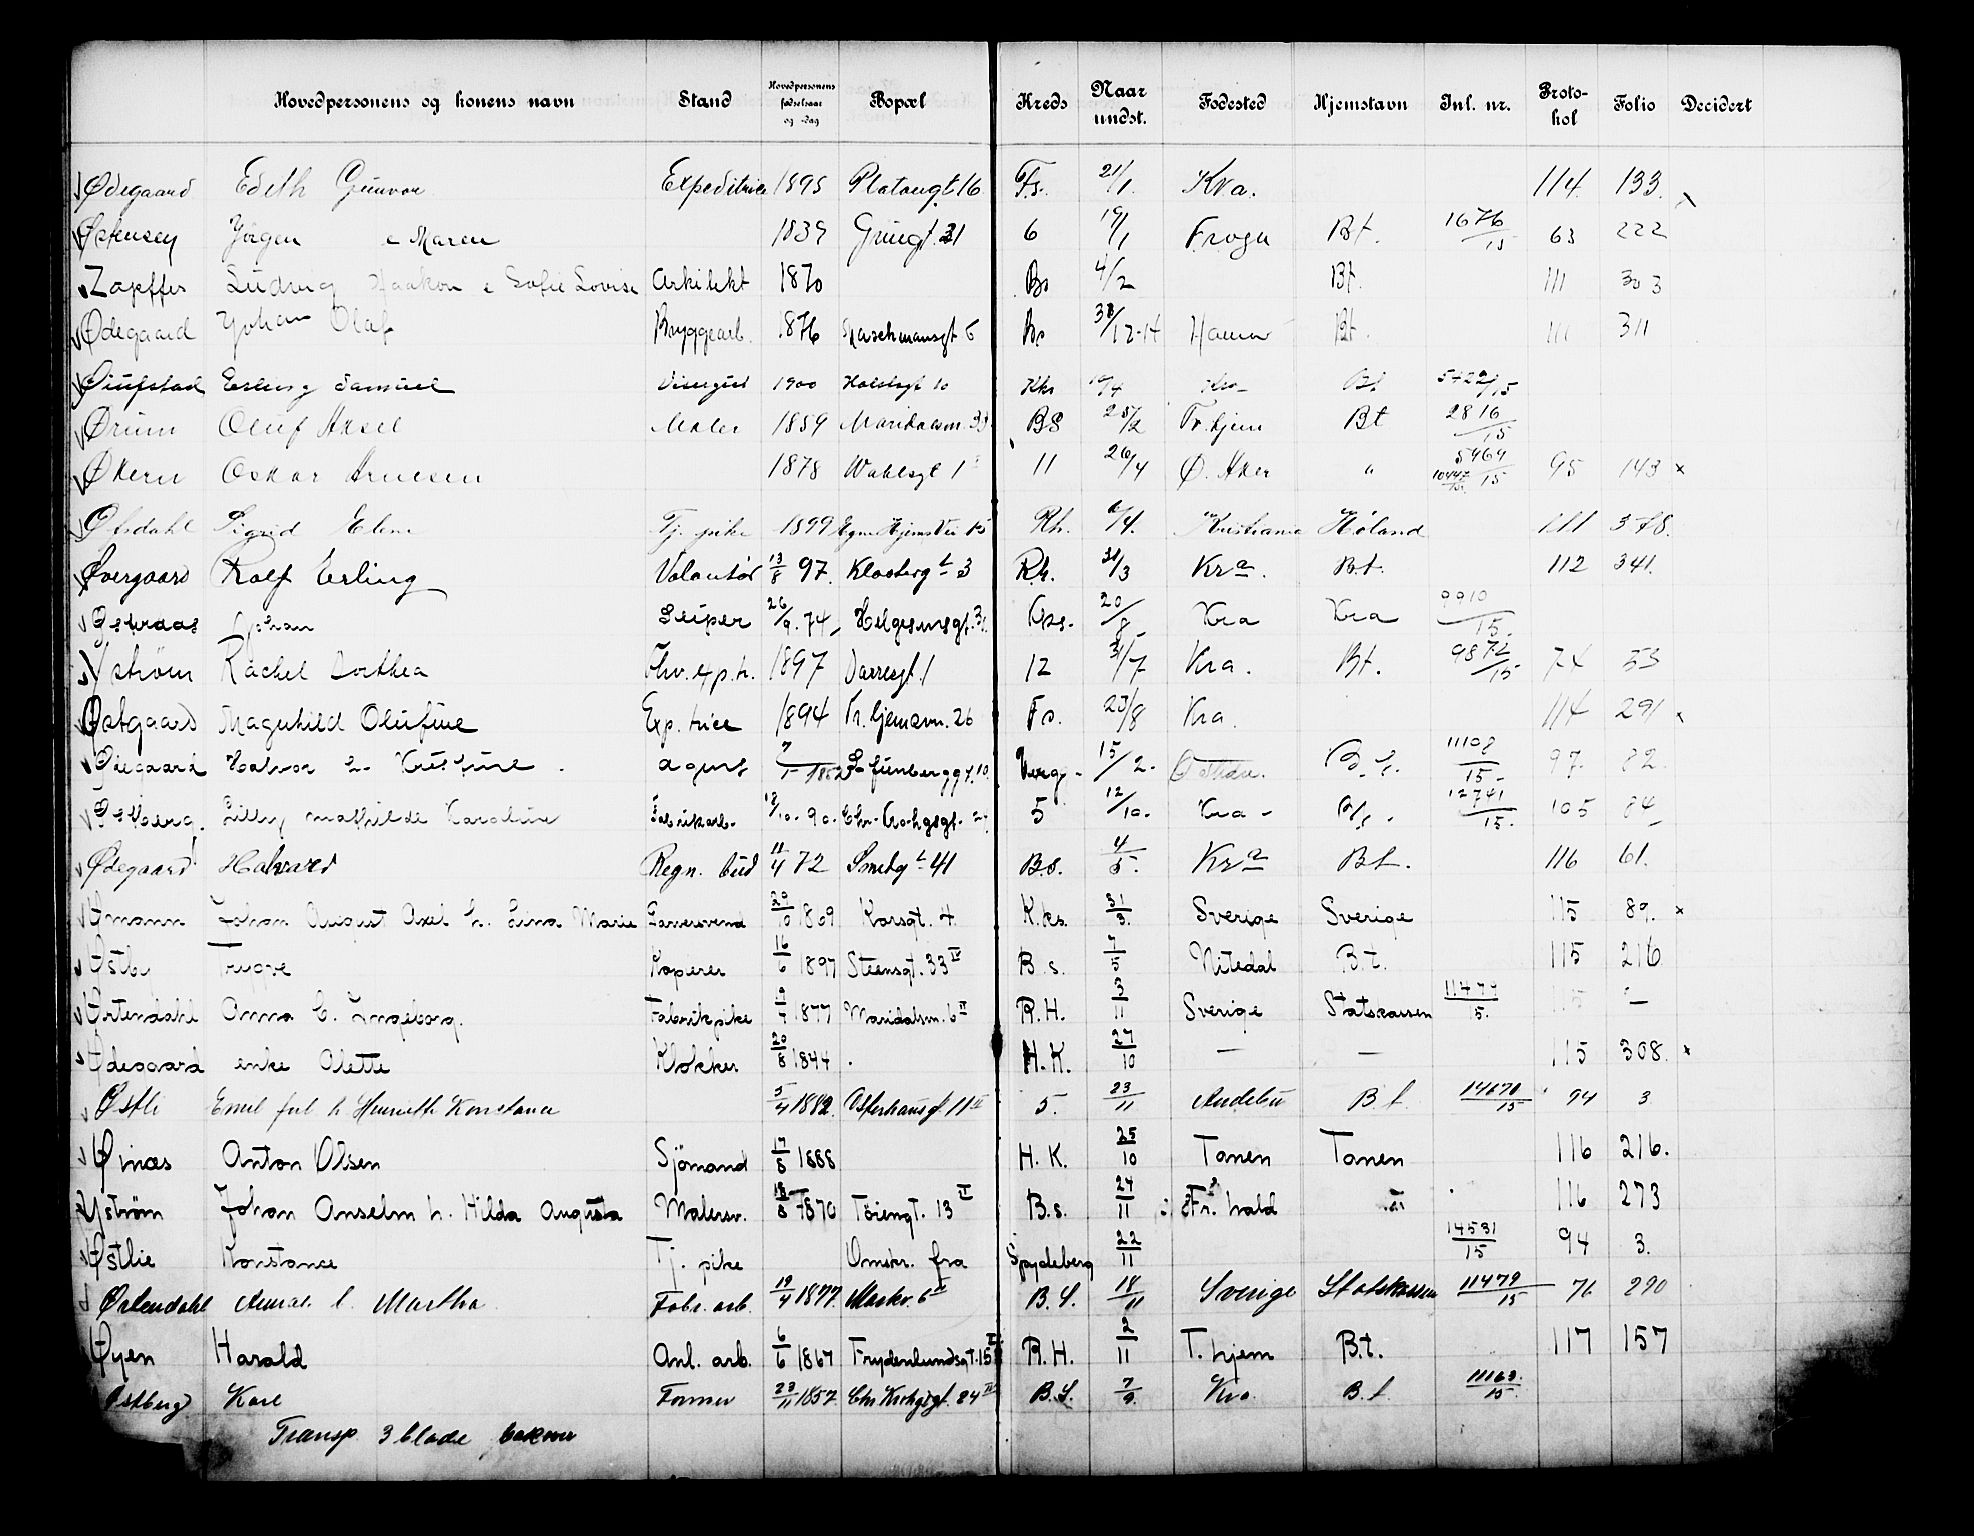 Hovedpersonens og konens navn Stand Hovedpersonens fødselsaar og -dag Bopæl Kreds Naar undst. Fødested Hjemstavn Inl. nr. Proto-kol Folio Decidert
Ødegaard Edith Gunvor Expeditrice 1895 Platougt 16 Fs. 21/1 Kra. 114 133
Østensen Jörgen e Maren 1839 6 19/1 Frogn Bt. 1676/15 63 222
Zapffes Ludvig Haakon e Sofie Lovise Arkitekt 1870 Bs 4/2 Bt. 111 303
Ødegaard Johan Olaf Bryggearb. 1876 Bs 12-14 Hamar Bt. 111 311
Erling Samuel Visergut 1900 Holstsgt 10 Kks 10/4 Kra Bt 5422/15
Ørum Oluf Axel Maler 1859 Maridalsvn. 33 BS 25/2 Tr.hjem Bt 2816/15
Økern Oskar Arnesen 1878 Wahlsgt 1 11 26/4 Ø. Aker " 5969/15 10447/15 95 143 x
Ofsdahl Sigrid Elene Tj. pike 1899 Egne Hjems Vei 15 Rh. 6/4. Kristiania Høland 111 378.
Øvergaard Rolf Erling Volontør 13/8 97. Klosterg t 3 R.h. 31/3 Kra. B.t. 112 341.
Johan 26/9. 74 Helgesensgt. 20/8 Kra Kra 9910/15.
Ystrøm Rachel Dorthea Thv. exp. tr. 1897 12 31/7 Kra. Bt. 9872/15 74 53
Østgaard Magnhild Olufine Exp. trice 1894 Tr.hjemsvn. 26 Fs. 23/8 Kra. 114 291 x
Ødegaard Halvor h. Kristine agent 15/2. 11108/15 97. 82.
Østberg. Lilly Mathilde Karoline Fabrikarb. 18/10. 90. Chr. Krohgsgt. 5 12/10. Kra 12741/15. 105 84
Ødegaard Halvard Regn. bud 11/4 72 Smedg t 41 B.s. 4/5. Kra Bt. 116 61.
Ømann Johan August Axel h. Lina Marie Garversvend 29/10 1869 Korsgt. 4. K.ks. 31/3. Sverige Sverige 115 89. x
Østby Trygve Koperer 16/6 1897 Steensgt. 33 IV B.s. 7/5 Nitedal B.t. 115 216
Ørtendahl Anna C. Ingeborg. Fabrikpike 19/4 1877 Maridalsvn. 6 II R.H. 3/11 Sverige Statskassen 11479/15. 115 —
Ødegaard enke Olette Klokker 20/8 1844 . H.K. 27/10 — — 115 308. x
Østli Emil h Henriette Konstance 5/4 1882. Osterhausgt 11 II 5. 23/11 Andebu B.t. 14670/15 94 3
Øinæs Anton Olsen Sjömand 17/8 1888 H.K. 25/10 Tanen Tanen 116 216.
Yström Johan Anselm h. Hilda Augusta Malersv. 18/8 1870 Töiengt. 13 II B.s. 24/11 Fr. hald 116 273
Østlie Konstance Tj. pike Omskr. fra Spydeberg 22/11 14531/15 94 3.
Ørtendahl C. Martha Fabr. arb. 19/4 1877. Markv. 6 II B.S. 18/11 Sverige Statskassen 11479/15 76 290
Øyen Harald Anl. arb. 6/6 1867 Frydenlundsgt. 15 II R.H. 2/11 T. hjem B.t. 117 157
Østberg Karl Former 23/11 1857. Chr Krohgsgt. 24 B.S. 7/9. Kra. B.t. 11163/15.
Transp 3 blade bakover